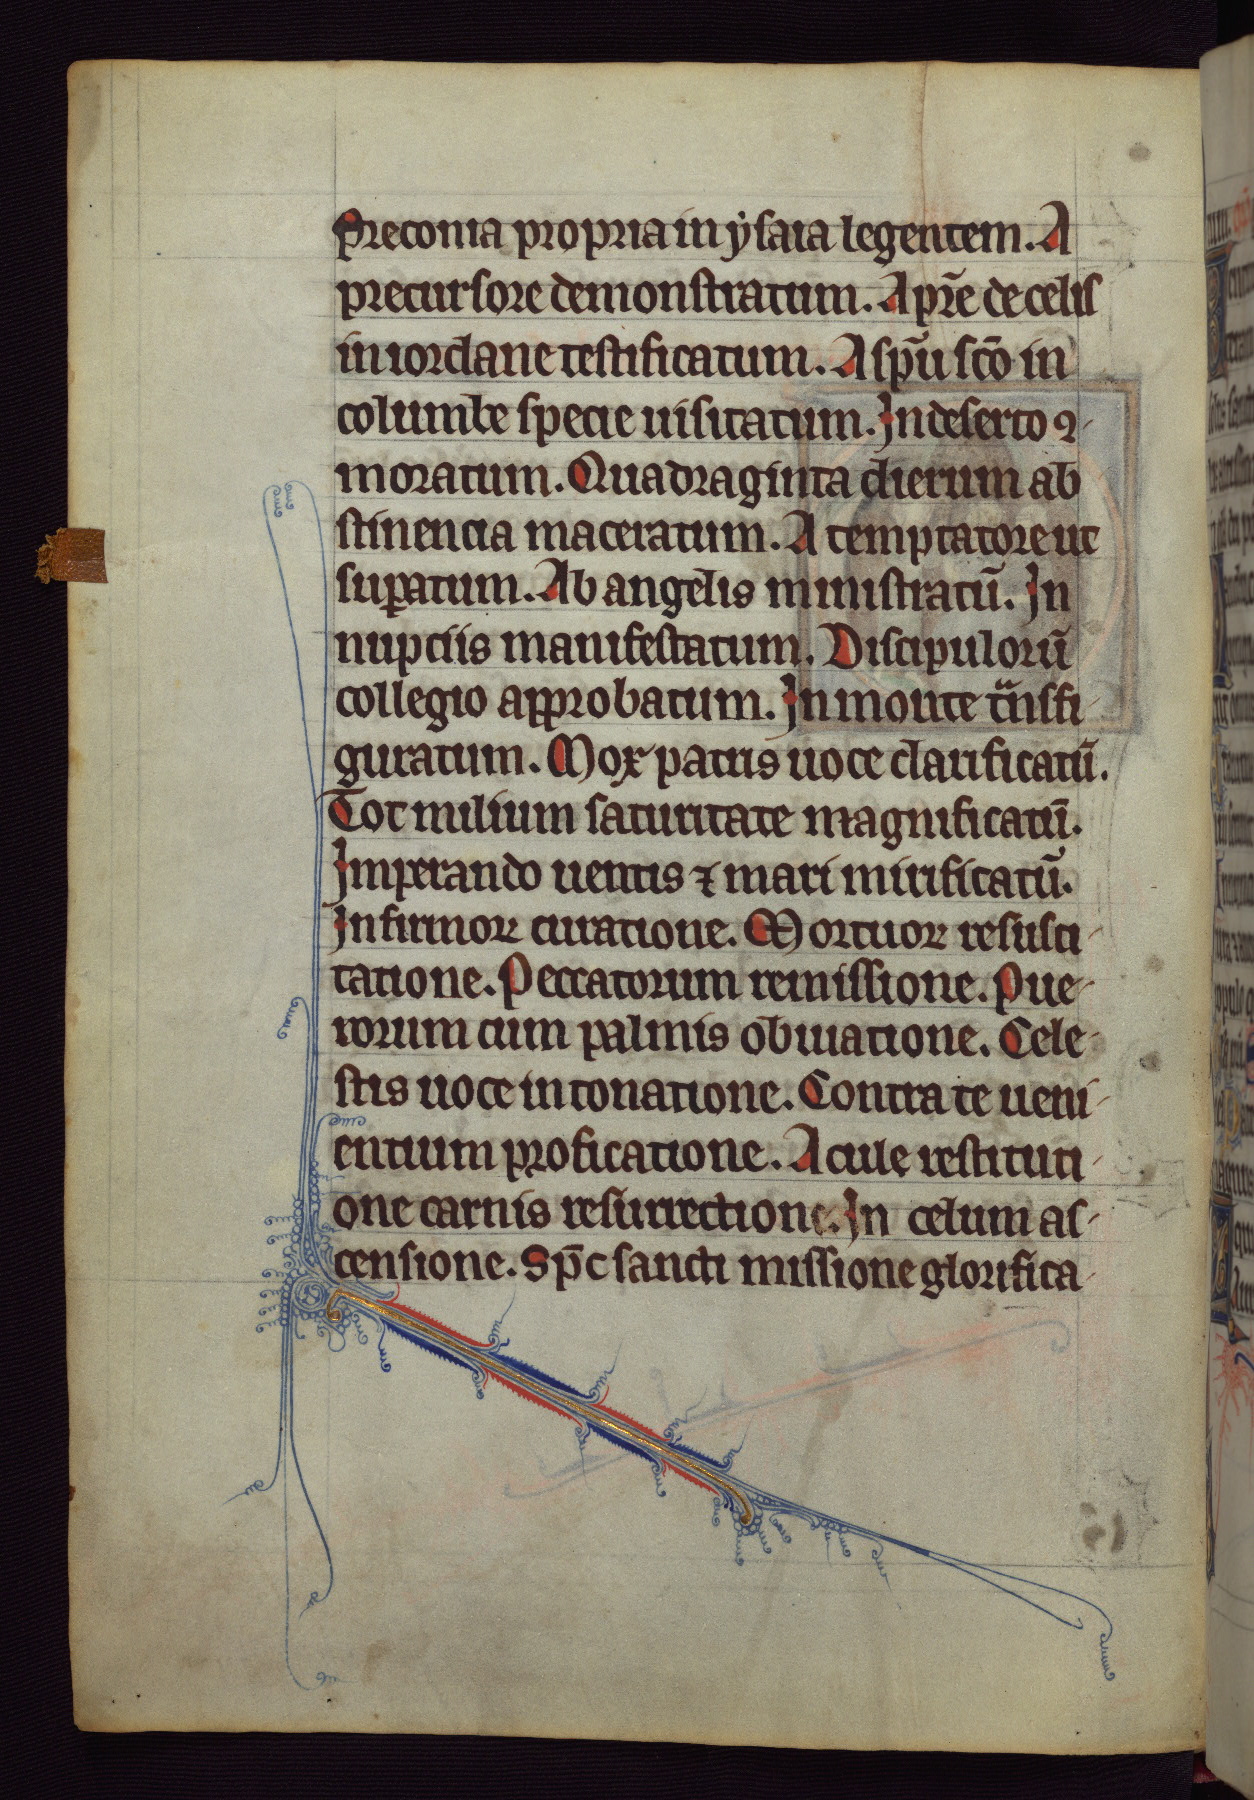 Preconia propria in ysaia legentem. A
precursore demonstratum. A pr̄e de celis
in iordane testificatum. A sp̄u sc̄o in
columbe specie uisitatum. In deserto ꝯ-
moratum. Quadraginta dierum ab
stinencia maceratum. A temptatore ut
suꝑatum. Ab angelis ministratū. In
nupciis manifestatum. Discipulorū
collegio approbatum. In monte tͣnsfi-
guratum. Mox patris uoce clarificatū.
Tot milium saturitate magnificatū.
Imperando uentis ⁊ mari mirificatū.
Infirmoꝝ curatione. Mortuoꝝ resusci-
tatione. Peccatorum remissione. Pue-
rorum cum palmis obuiatione. Cele-
stis uoce intonatione. Contra te ueni-
entium ꝓficatione. Acule restituti-
one carnis resurrectione. In celum as-
censione. Sp̄c sancti missione glorifica-